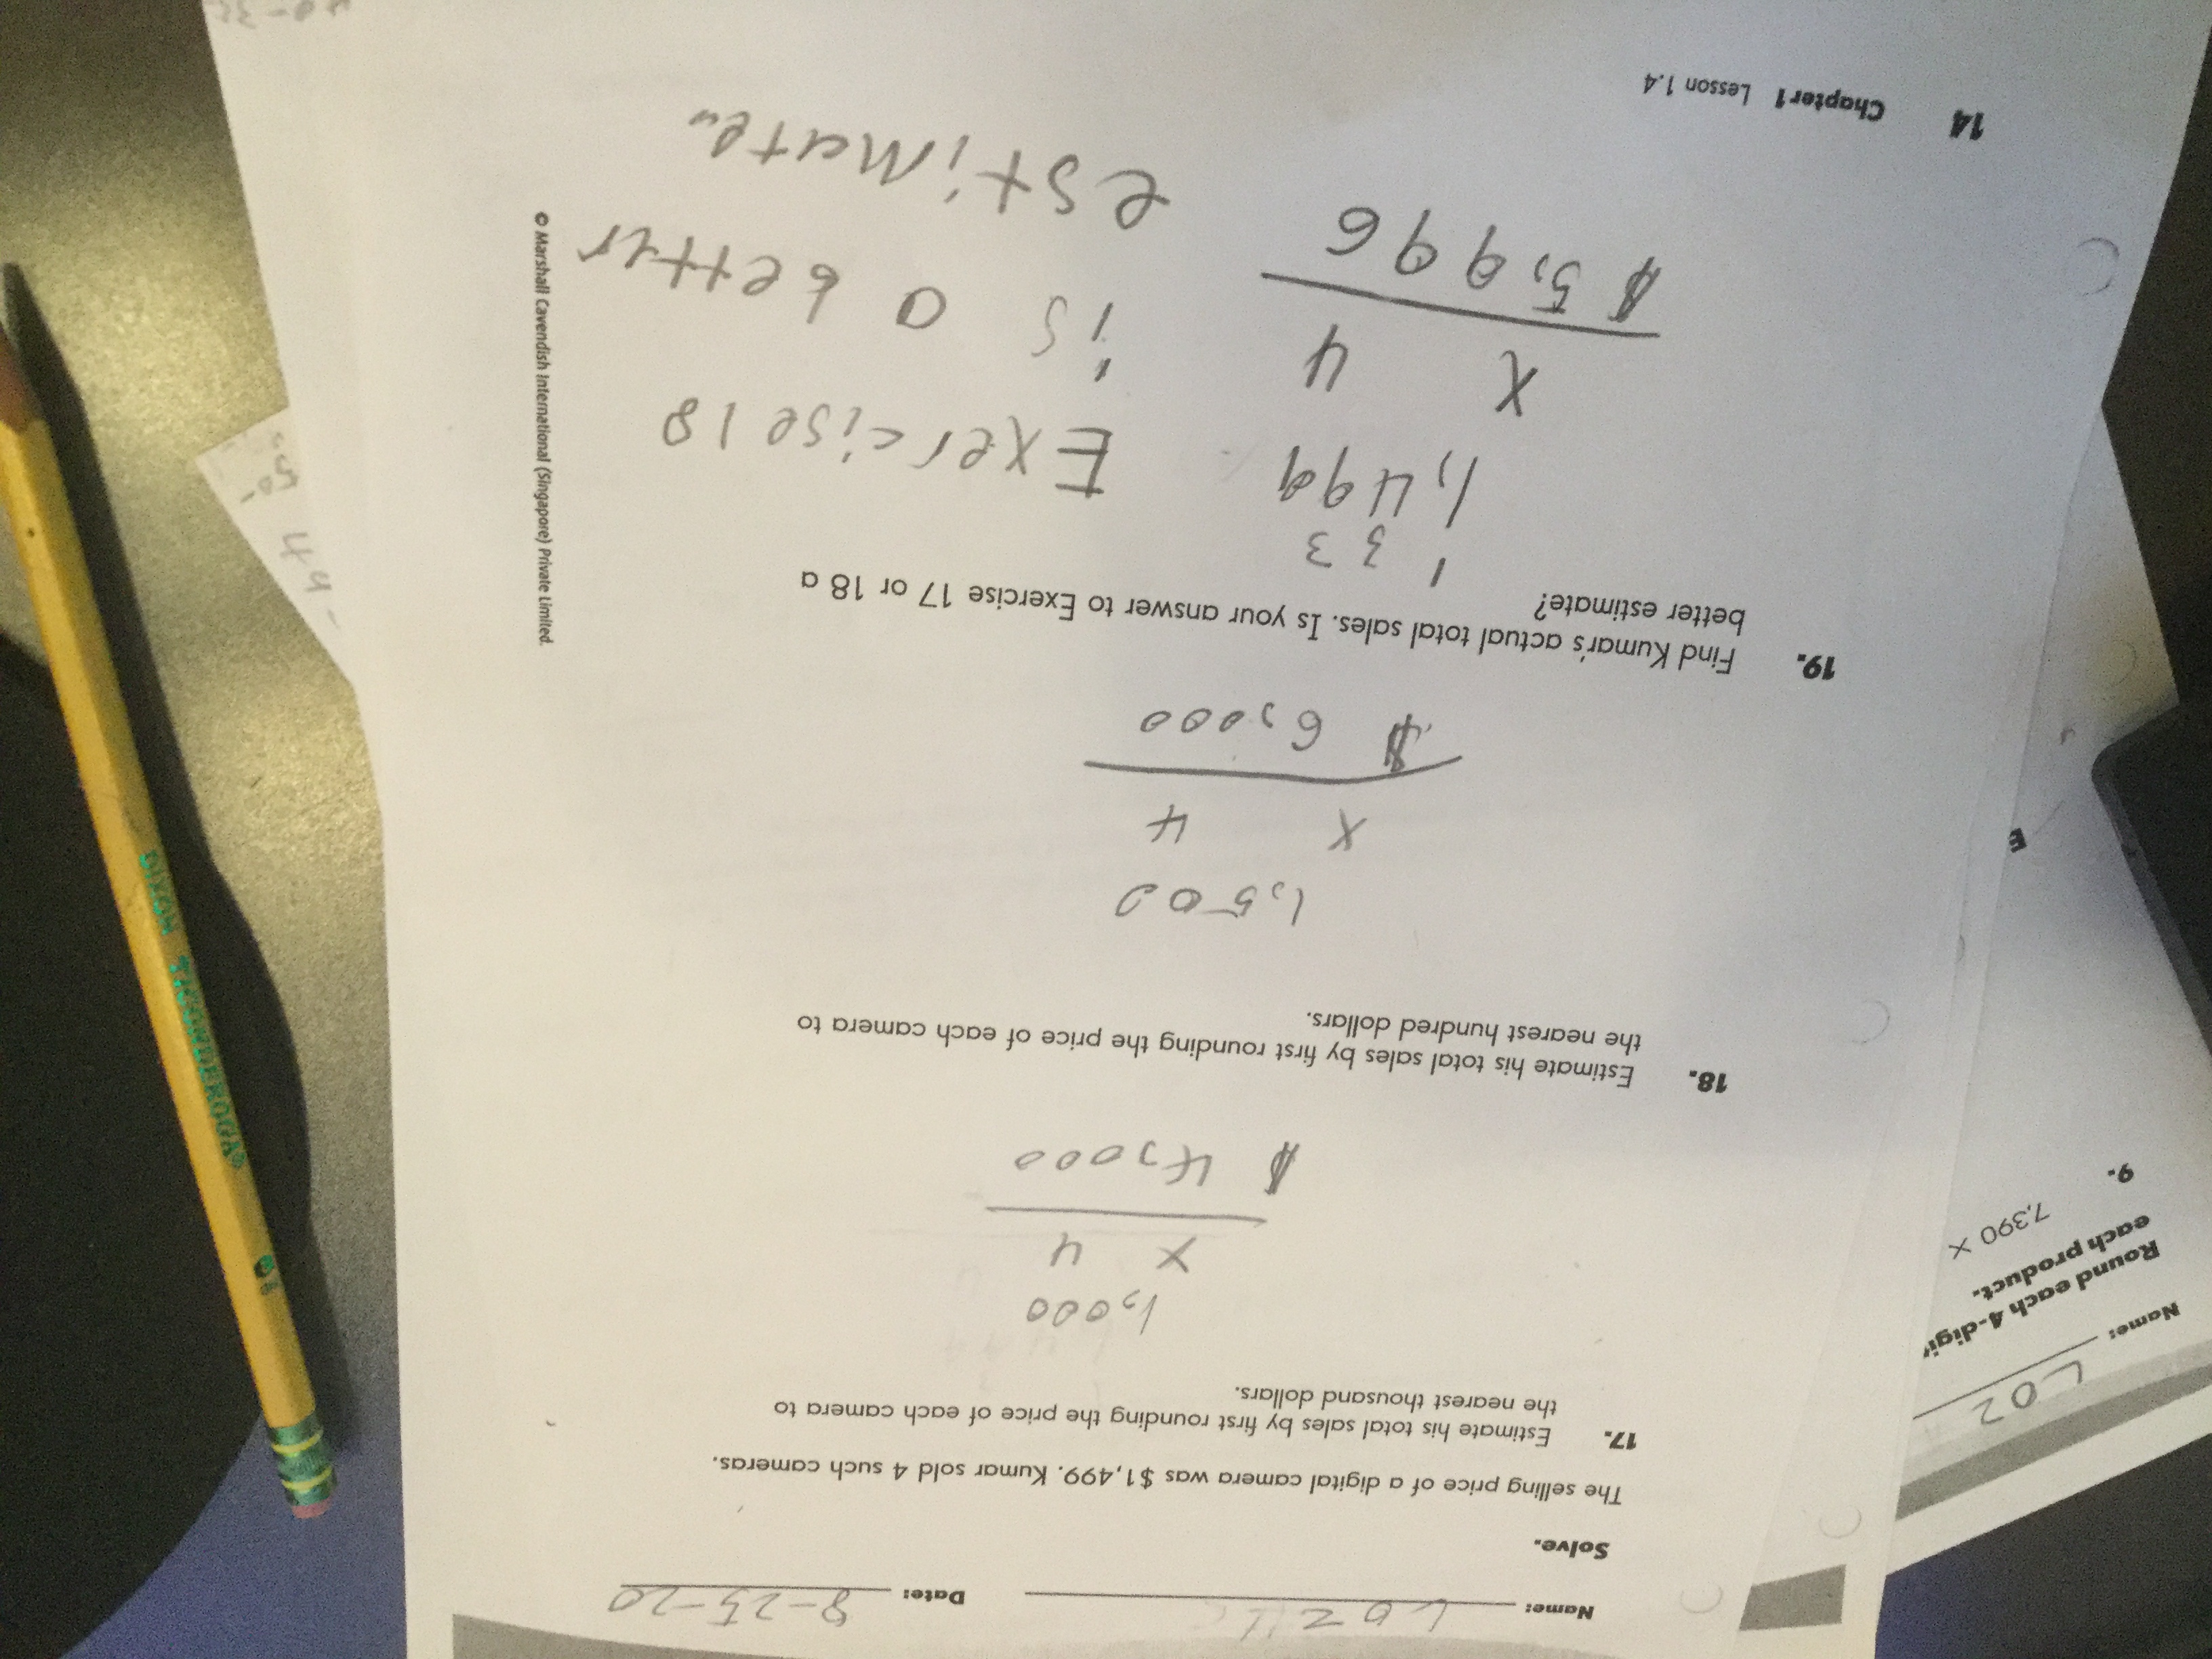 Name: LOZ
Date: 8-25-20
Solve.
The selling price of a digital camera was $1,499. Kumar sold 4 such cameras.
17. Estimate his total sales by first rounding the price of each camera to
the nearest thousand dollars.
1,000
X 4
$ 4,000
18. Estimate his total sales by first rounding the price of each camera to
the nearest hundred dollars.
1,500
X 4
$ 6,000
19. Find Kumar's actual total sales. Is your answer to Exercise 17 or 18 a
better estimate?
1 3 3
1,499
X 4
$ 5,996
Exercise 18
is a better
estimate.
14 Chapter 1 Lesson 1.4
© Marshall Cavendish International (Singapore) Private Limited.
Name: LOZ
Round each 4-digit
each product.
9. 7,390 X
E
DIXON TICONDEROGA